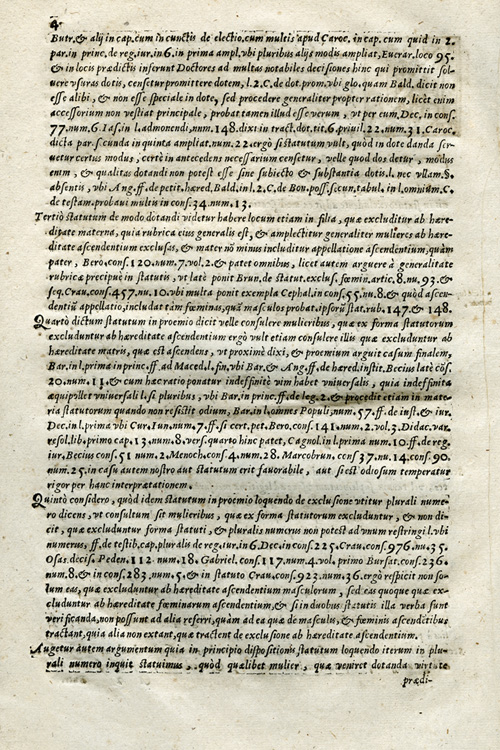 4
Butr. & alij in cap. cum in cunctis de electio. cum multis apud Caroc. in cap. cum quid in 2.
par. in princ. de reg. iur. in 6. in prima ampl. vbi pluribus alijs modis ampliat, Euerar. loco 95.
& in locis prædictis inferunt Doctores ad multas notabiles decisiones hinc qui promittit sol-
uere vsuras dotis, censetur promittere dotem, l. 2. C. de dot. prom. vbi glo. quam Bald. dicit non
esse alibi, & non esse speciale in dote, sed procedere propter rationem, licèt enim
accessorium non vestiat principale, probat tamen illud esse verum, vt per eum, Dec. in cons.
77. num. 6. Ias. in l. admonendi, num. 148. dixi in tract. dot. tit. 6. priuil. 22. num. 31. Caroc.
dicta par. secunda in quinta ampliat. num. 22. ergò si statutum vult, quòd in dote danda ser-
uetur certus modus, certè in antecedens necessarium censetur, velle quod dos detur, modus
enim, & qualitas dotandi non potest esse sine subiecto & substantia dotis. l. nec vllam. §.
absentis, vbi Ang. ff. de petit. hæred. Bald. in l. 2. C. de Bon. poss. secun. tabul. in l. omnium. C.
de testam. probaui multis in cons. 34. num. 13.
Tertiò statutum de modo dotandi videtur habere locum etiam in filia, quæ excluditur ab hære-
ditate materna, quia rubrica eius generalis est, & amplectitur generaliter mulieres ab hære-
ditate ascendentium exclusas, & mater nō minus includitur appellatione ascendentium, quàm
pater, Berò. cons. 120. num. 7. vol. 2. & patet omnibus, licet autem arguere à generalitate
rubricæ præcipuè in statutis, vt latè ponit Brun. de statut. exclus. fœmin. artic. 8. nu. 93. &
seq. Crau. cons. 457. nu. 10. vbi multa ponit exempla Cephal. in cons. 55. nu. 8. & quòd ascen-
dentiū appellatio, includat tàm fœminas, quā masculos probat. ipsorū stat. rub. 147. & 148.
Quartò dictum statutum in proemio dicit velle consulere mulieribus, quæ ex forma statutorum
excluduntur ab hæreditate ascendentium ergò vult etiam consulere illis quæ excluduntur ab
hæreditate matris, quæ est ascendens, vt proximè dixi, & proemium arguit casum finalem,
Bar. in l. prima in princ. ff. ad Maced. l. fin. vbi Bar. & Ang. ff. de hæred. instit. Becius latè cōs.
20. num. 11. & cum hæc ratio ponatur indeffinitè vim habet vniuersalis, quia indeffinita
æquipollet vniuersali l. si pluribus, vbi Bar. in princ. ff. de leg. 2. & procedit etiam in mate-
ria statutorum quando non resistit odium, Bar. in l. omnes Populi, num. 57. ff. de iust. & iur.
Dec. in l. prima vbi Cur. Iun. num. 7. ff. si cert. pet. Bero. cons. 141. num. 2. vol. 3. Didac. var.
resol. lib. primo cap. 13. num. 8. vers. quarto hinc patet, Cagnol. in l. prima num. 10. ff. de reg.
iur. Becius cons. 51 num. 2. Menoch. cons. 4. num. 28. Marcobrun. cons. 37. nu. 14. cons. 90.
num. 25. in casu autem nostro aut statutum erit fauorabile, aut si est odiosum temperatur
rigor per hanc interpretationem.
Quintò considero, quòd idem statutum in proemio loquendo de exclusione vtitur plurali nume-
ro dicens, vt consultum sit mulieribus, quæ ex forma statutorum excluduntur, & non di-
cit, quæ excluduntur forma statuti, & pluralis numerus non potest ad vnum restringi. l. vbi
numerus, ff. de testib. cap. pluralis de reg. iur. in 6. Dec. in cons. 225. Crau. cons. 976. nu. 35.
Osas. decis. Peden. 112. num. 18. Gabriel. cons. 117. num. 4. vol. primo Bursat. cons. 236.
num. 8. & in cons. 283. num. 5. & in statuto Crau. cons. 923. num. 36. ergò respicit non so-
lum eas, quæ excluduntur ab hæreditate ascendentium masculorum, sed eas quoque quæ ex-
cluduntur ab hæreditate fœminarum ascendentium, & si in duobus statutis illa verba sunt
verificanda, non possunt ad alia referri, quàm ad ea quæ de masculis, & fœminis ascendētibus
tractant, quia alia non extant, quæ tractent de exclusione ab hæreditate ascendentium.
Augetur autem argumentum quia in principio dispositionis statutum loquendo iterum in plu-
rali numero inquit statuimus, quòd quælibet mulier, quæ veniret dotanda virtute
prædi-